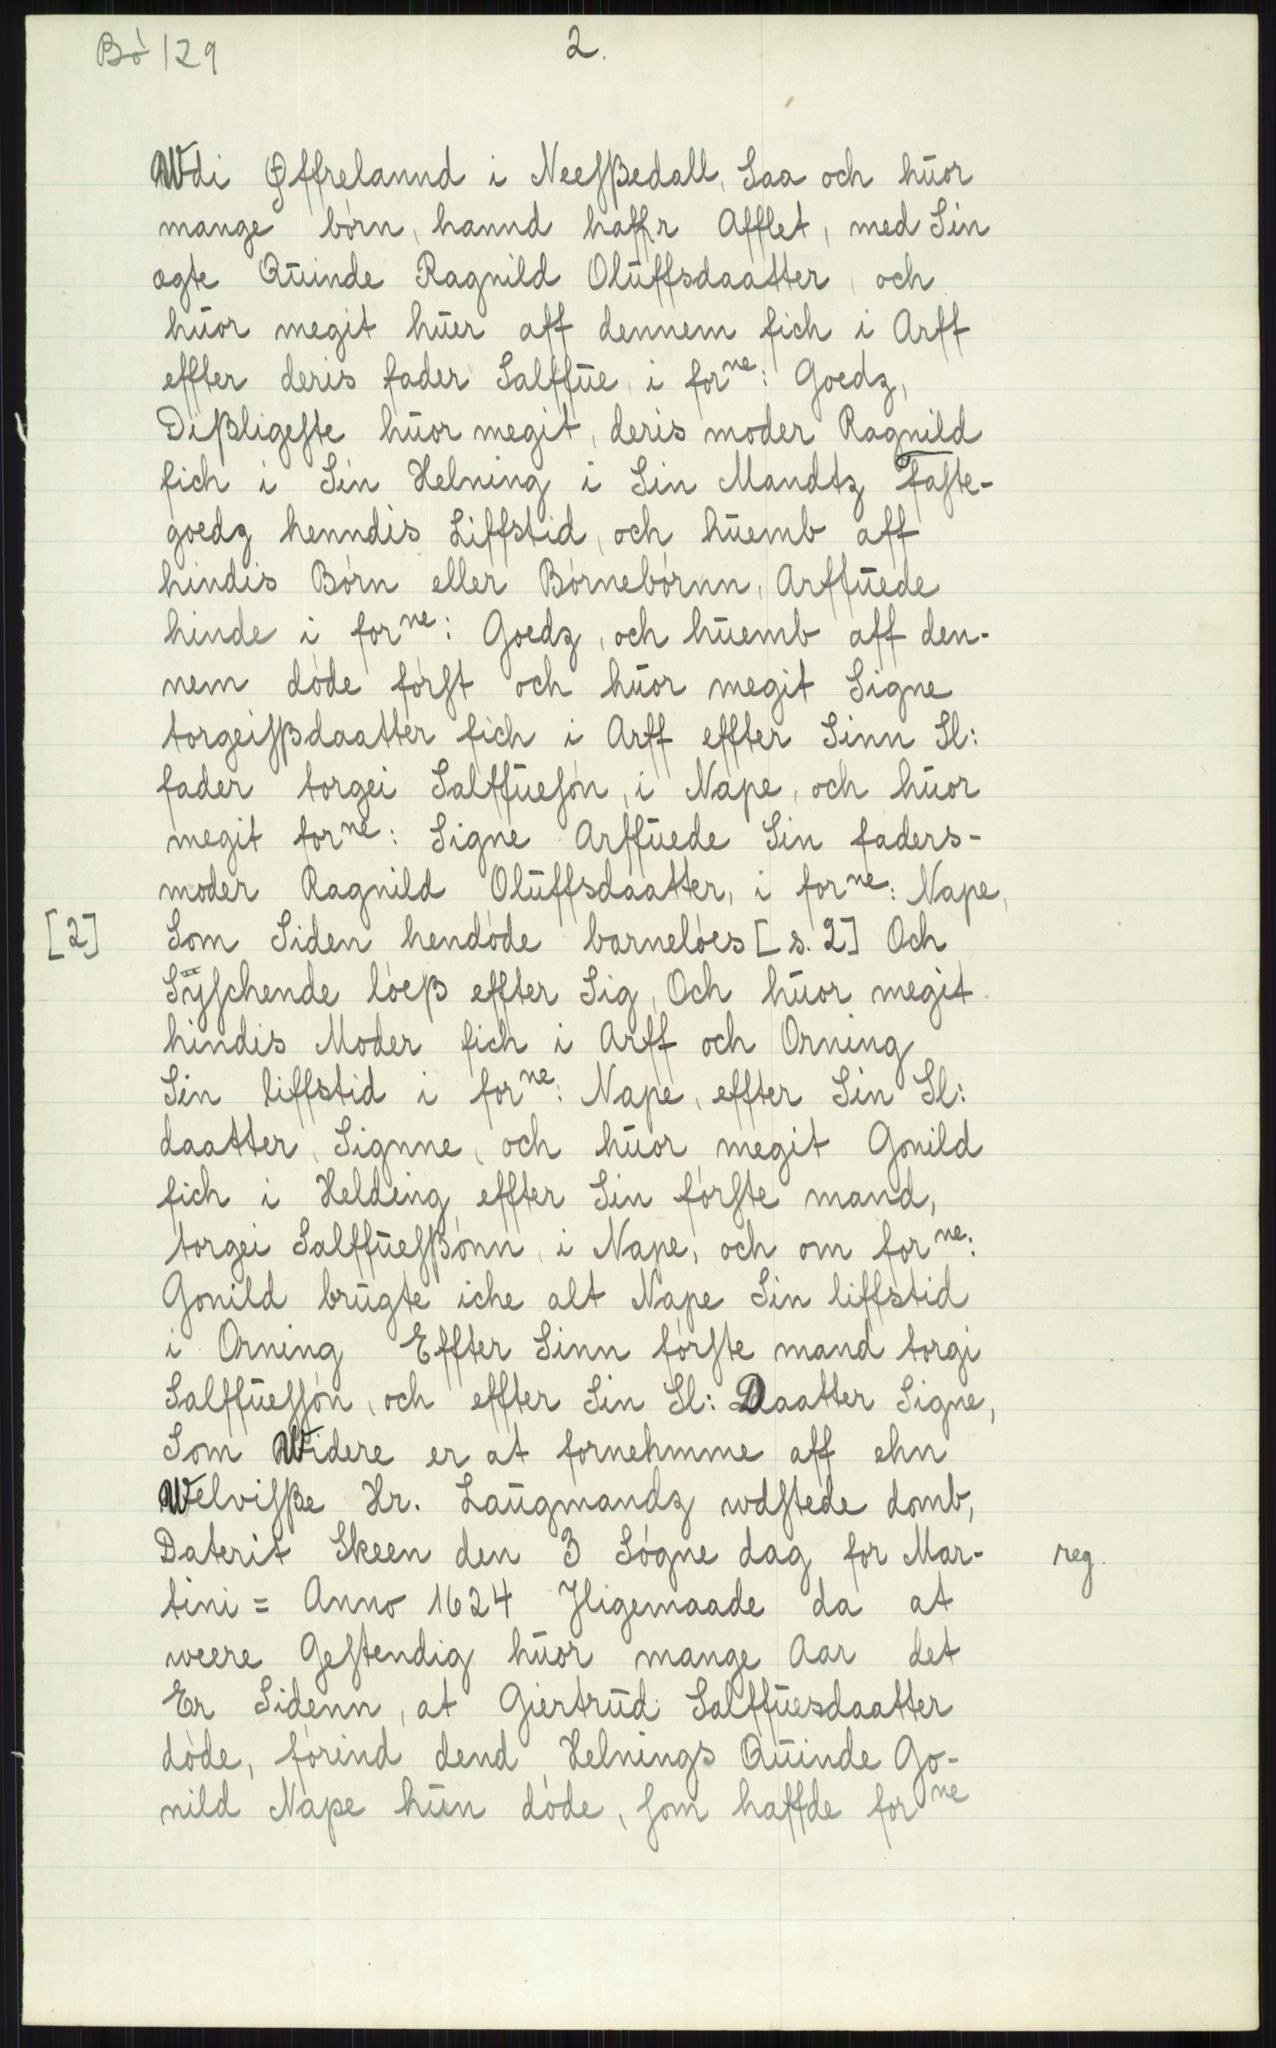 Bó 129
2.
Wdi Øffrelannd i Neesßedall, Saa och huor
mange børn, hannd haffr Afflet, med Sin
ægte Quinde Ragnild Oluffsdaatter, och
huor megit huer aff dennem fich i Arff
effter deris fader Salffue, i for ne: Goedz,
Dißligeste huor megit, deris moder Ragnild
fich i Sin Helning i Sin Mandtz Faste-
goedz henndis Liffstid, och huemb aff
hindis Børn eller Børnebørnn, Arffuede
hinde i for ne: Goedz, och huemb aff den-
nem døde først och huor megit Signe
torgeisßdaatter fich i Arff effter Sinn Sl:
fader torgei Salffuesøn, i Nape, och huor
megit for ne: Signe Arffuede Sin faders-
moder Ragnild Oluffsdaatter, i for ne: Nape,
[2] Som Siden hendøde barneløes [s. 2] Och
Sÿschende løeß effter Sig, Och huor megit
hindis Moder fich i Arff och Orning
Sin liffstid i for ne: Nape, effter Sin Sl:
daatter, Signne, och huor megit Gonild
fich i Helding effter Sin første mand,
torgei Salffuesßønn, i Nape, och om for ne:
Gonild brugte iche alt Nape Sin liffstid
i Orning Effter Sinn første mand torgi
Salffuessøn, och effter Sin Sl: Daatter Signe,
Som Widere er at fornehmme aff ehn
Welvisße Hr. Laugmandz wdstede domb,
Daterit Skeen den 3 Søgne dag for Mar- reg.
tini = Anno 1624 Jligemaade da at
weere Gestendig huor mange Aar det
Er Sidenn, at Giertrud Salffuesdaatter
døde, førind dend Helnings Quinde Go-
nild Nape hun døde, som haffde for ne